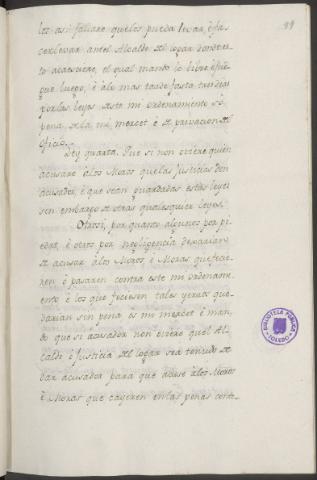 99
los así fallare que los pueda levar, é fa-
cer levar ante el Alcalde del logar donde es-
to acaesciere, el qual mando lo libre é jud-
gue luego, é alo mas tarde fasta tres dias
por las leyes deste mi ordenamiento só
pena de la mi mercet é de privacion del
oficio.
Ley quarta. Que si non oviere quien
acusare á los Moros que las Justicias den
acusador, é que sean guardadas estas leyes
sen embargo de otras qualesquier leyes.
Otrosi, por quanto algunos por pie-
dat, é otros por negligencia dexarian
de acusar á los Moros, é Moras que fecie-
ren é pasaren contra este mi ordenami-
ento é los que feciesen tales yerros que-
darian sin pena es mi mercet é man-
do que si acusador non oviere quel Al-
calde é Justicia del logar sea tenudo de
dar acusador para que acuse á los Moros
é Moras que cayeren en las penas conte-
BIBLIOTECA PUBLICA
TOLEDO